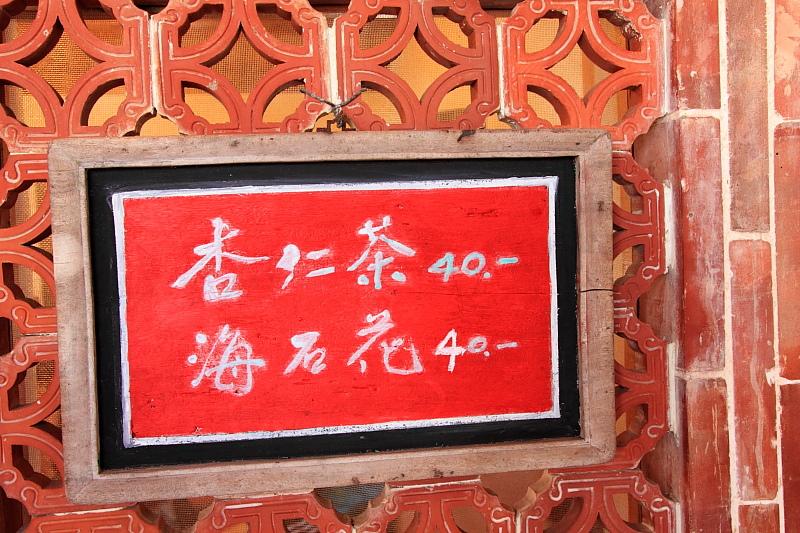 杏仁茶 40.-
海石花 40.-